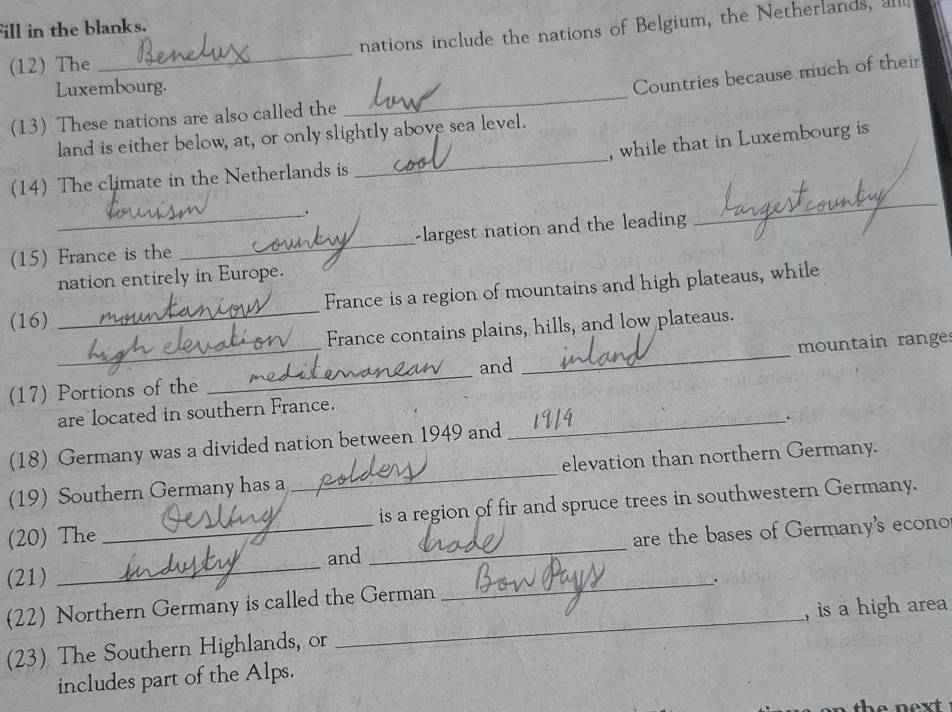 Fill in the blanks.
(12) The Benelux nations include the nations of Belgium, the Netherlands, and
Luxembourg.
(13) These nations are also called the low Countries because much of their
land is either below, at, or only slightly above sea level.
(14) The climate in the Netherlands is cool, while that in Luxembourg is
tourism.
(15) France is the country-largest nation and the leading largest country
nation entirely in Europe.
(16) mountanious France is a region of mountains and high plateaus, while
high elevation France contains plains, hills, and low plateaus.
(17) Portions of the mediterranean and inland mountain ranges
are located in southern France.
(18) Germany was a divided nation between 1949 and 1919.
(19) Southern Germany has a polders elevation than northern Germany.
(20) The Oesling is a region of fir and spruce trees in southwestern Germany.
(21) industry and trade are the bases of Germany's econo
(22) Northern Germany is called the German Bon Pays.
(23) The Southern Highlands, or , is a high area
includes part of the Alps.
on the next